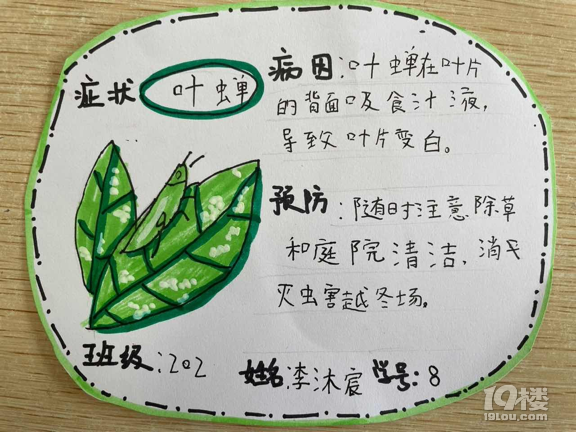 症状
叶蝉
病因:叶蝉在叶片
的背面吸食汁液,
导致叶片变白。
预防:随时注意除草
和庭院清洁,消灭
灭虫害越冬场。
班级:202
姓名李沐宸 学号:8
19楼
19lou.com